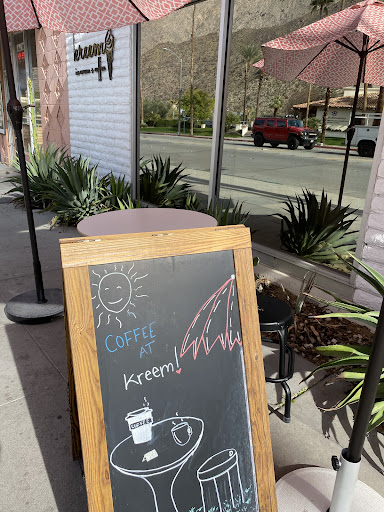 kreem
COFFEE
AT
Kreem!
COFFEE